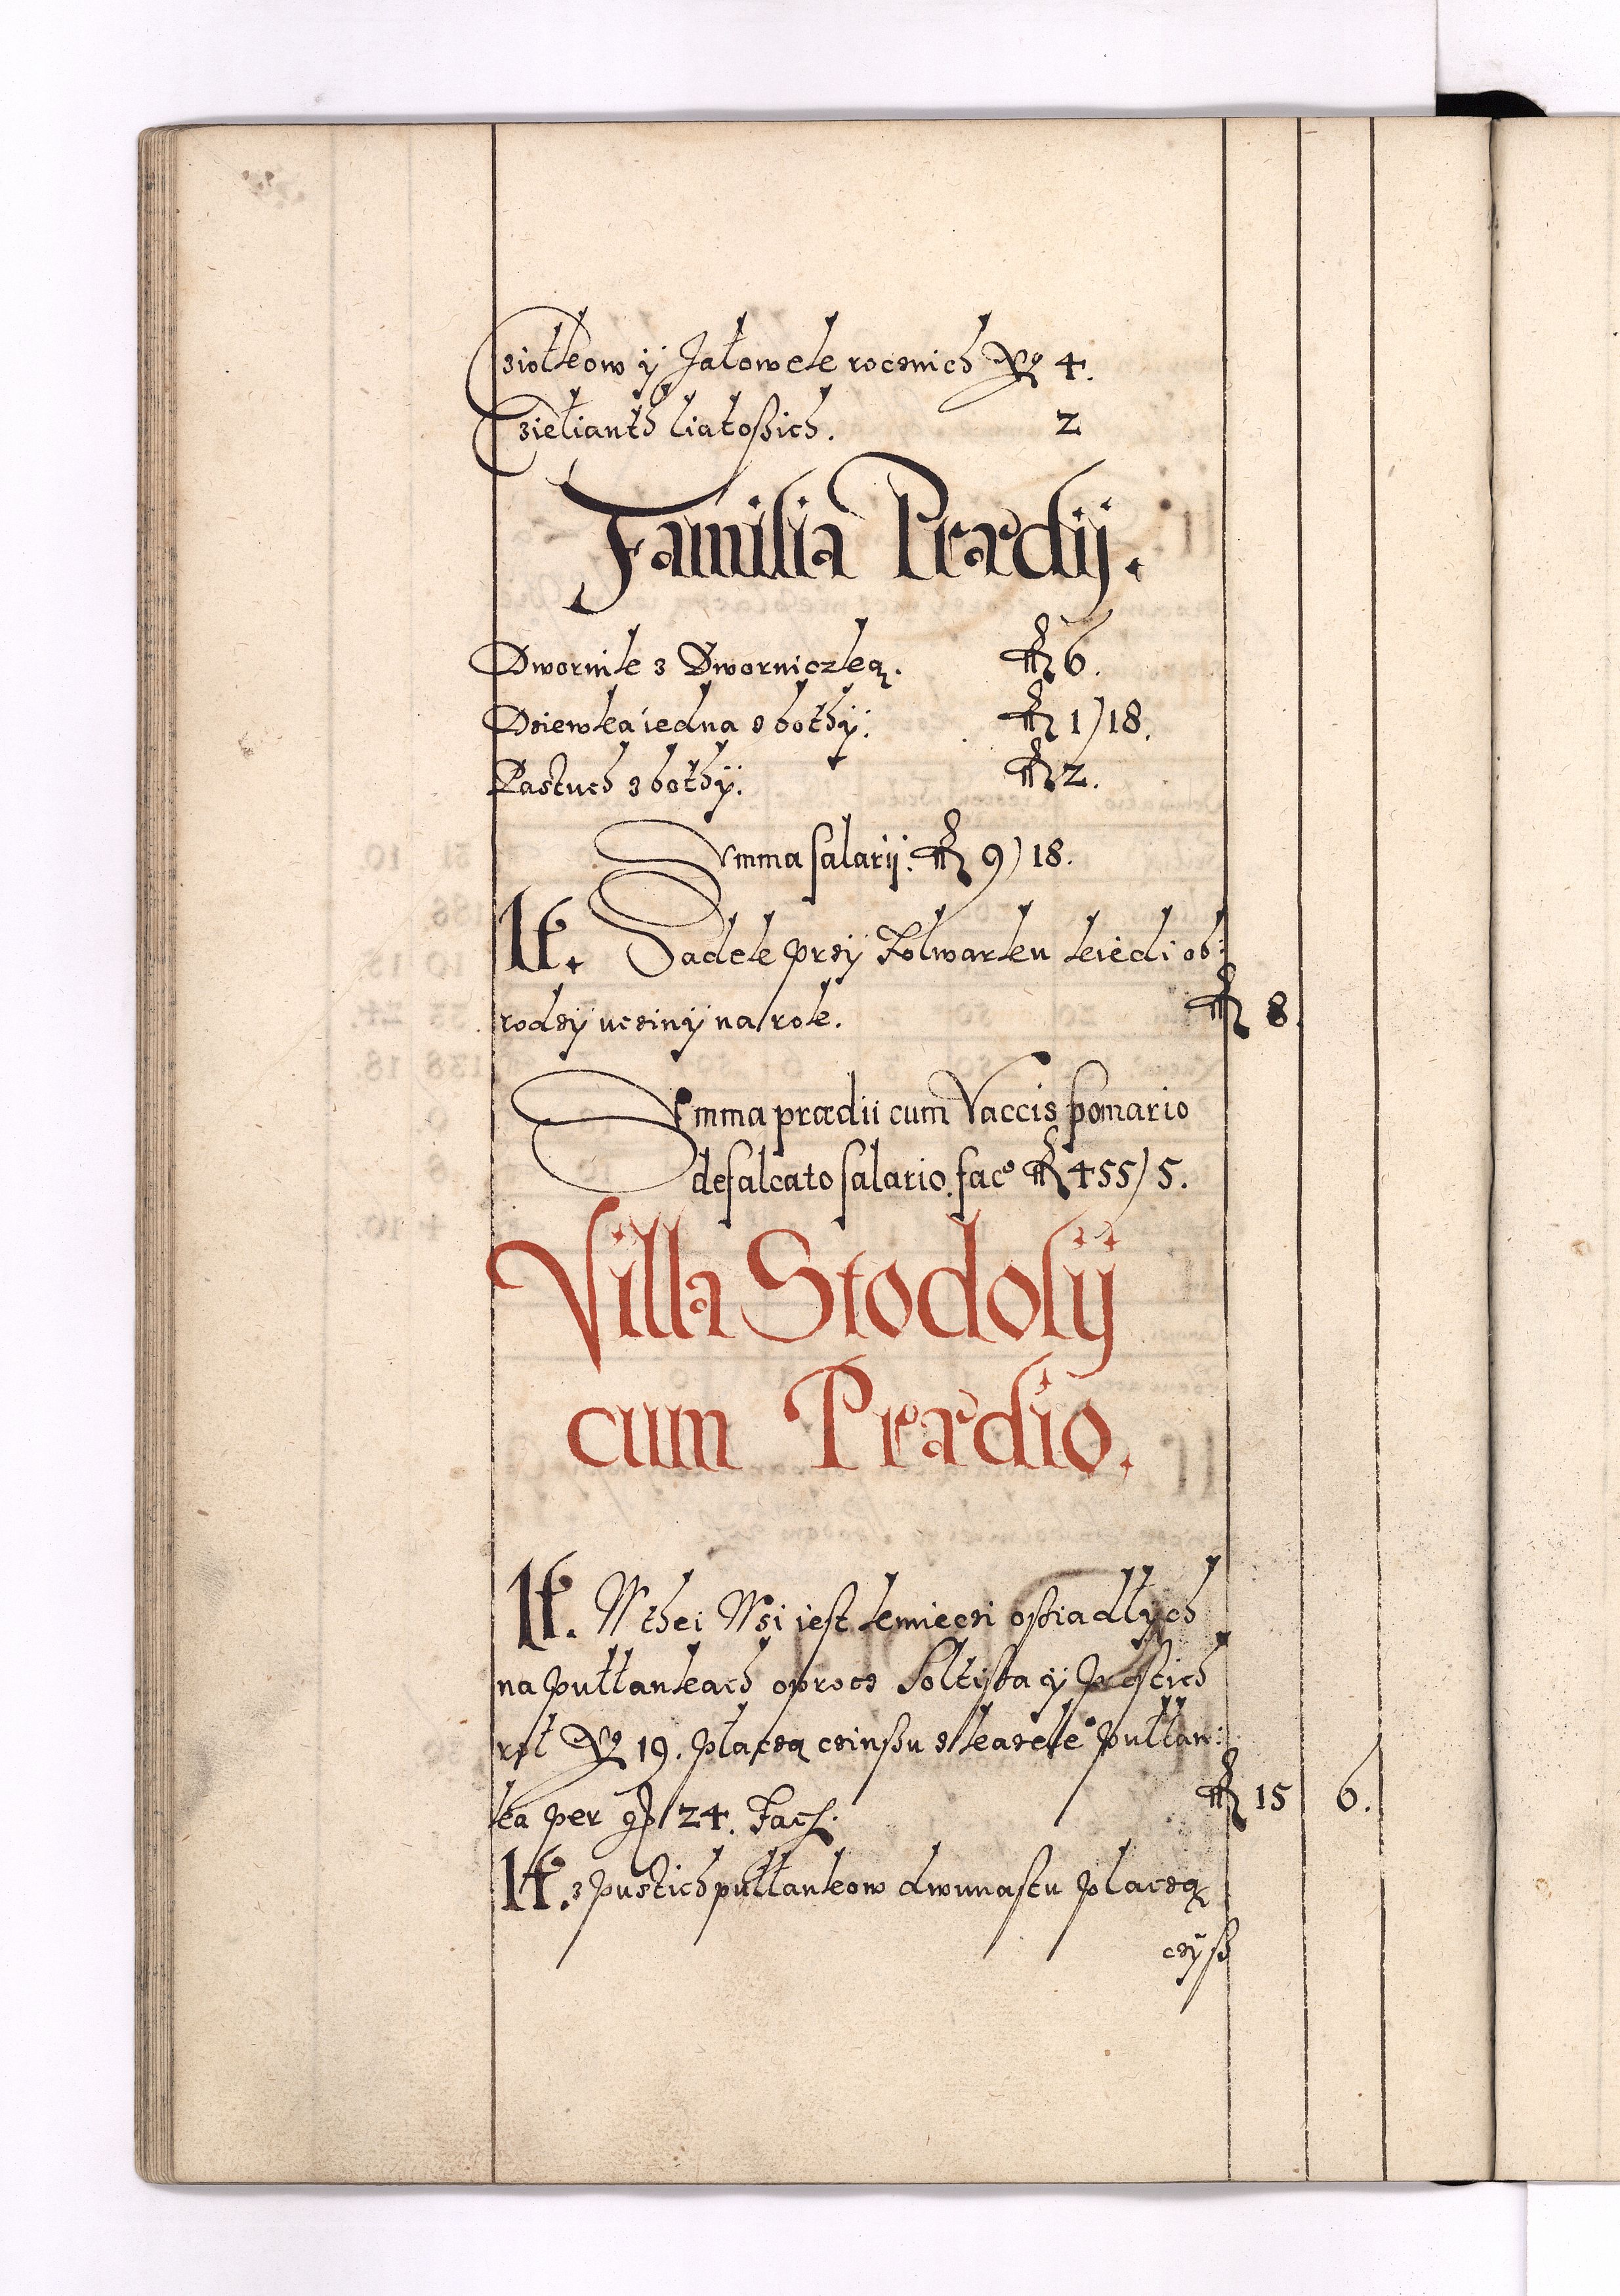 Cziołkow ÿ Jałowek rocznich No 4.
Czieliantħ liatoßich. 2
Familia Prædij.
Dwornik z Dworniczką. fl 6.
Dziewka iedna z bothÿ. fl 1) 18.
Pastuch z bothÿ. fl 2.
Summa salarij. fl 9) 18.
It. Sadek przÿ Folwarku kiedi ob:
rodzÿ ucziný na rok. fl 8.
Summa prædii cum Vaccis pomario
defalcato salario. faco fl 455) 5.
Villa Stodolÿ
cum Prædio.
It. W thei Wsi iest kmieczi oßiadłych
na pułłankach oprocz Soltißa ÿ pustich
No 19. płaczą czinßu z każde° pułłan:
ka per gr 24. Facȷ. fl 15 6.
It. z pustich pułłankow dwunastu płaczą
czÿß